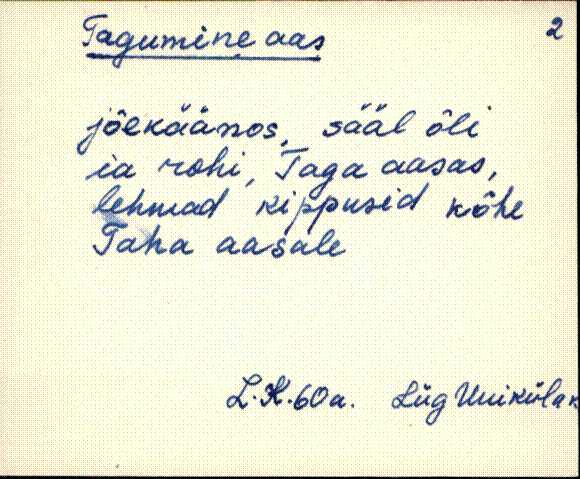 Tagumine aas 2
jõekäänos, sääl õli
ia rohi, Taga aasas,
lehmad kippusid kõhe
Taha aasale
L.K. 60a. Lüg Uuikülak